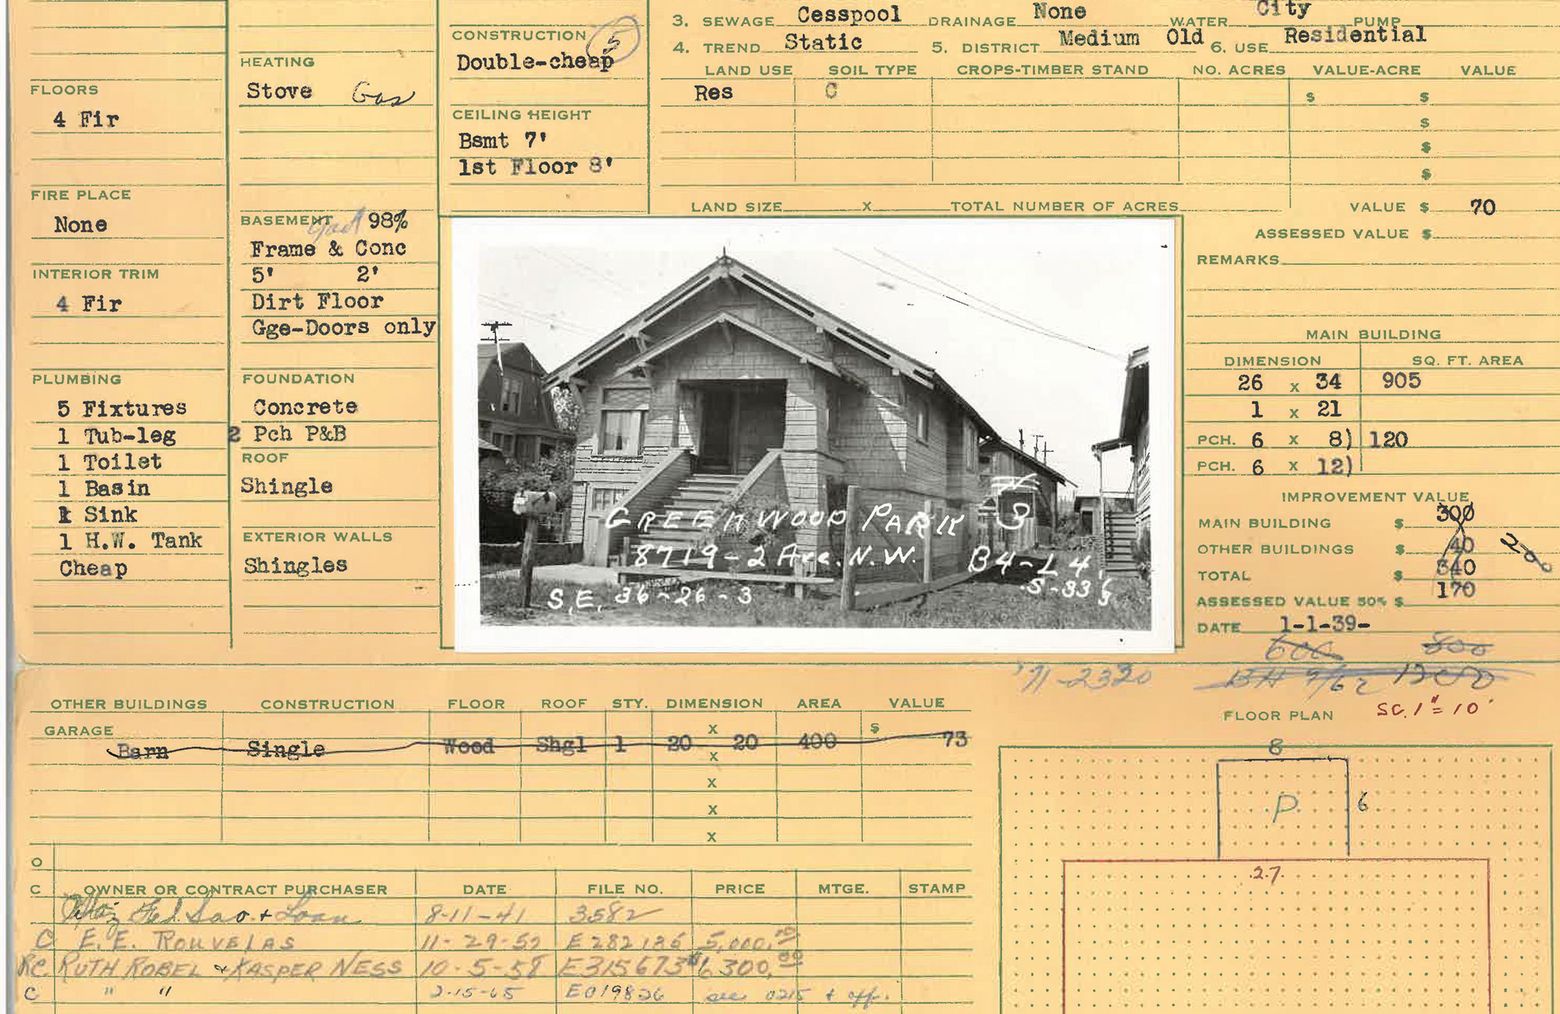 3. SEWAGE Cesspool DRAINAGE None WATER City PUMP
4. TREND Static 5. DISTRICT Medium Old 6. USE Residential
LAND USE SOIL TYPE CROPS-TIMBER STAND NO. ACRES VALUE-ACRE VALUE
Res C $ $
$
$
$
LAND SIZE x TOTAL NUMBER OF ACRES VALUE $ 70
ASSESSED VALUE $
REMARKS
FLOORS
4 Fir
FIRE PLACE
None
INTERIOR TRIM
4 Fir
PLUMBING
5 Fixtures
1 Tub-leg
1 Toilet
1 Basin
1 Sink
1 H.W. Tank
Cheap
HEATING
Stove Gas
BASEMENT 98%
Frame & Conc
5' 2'
Dirt Floor
Gge-Doors only
FOUNDATION
Concrete
2 Pch P&B
ROOF
Shingle
EXTERIOR WALLS
Shingles
CONSTRUCTION 5
Double-cheap
CEILING HEIGHT
Bsmt 7'
1st Floor 8'
GREENWOOD PARK #3
8719-2 Ave. N.W. B4-L4,
S-33'5
S.E. 36-26-3
MAIN BUILDING
DIMENSION SQ. FT. AREA
26 x 34 905
1 x 21
PCH. 6 x 8) 120
PCH. 6 x 12)
IMPROVEMENT VALUE
MAIN BUILDING $ 300
OTHER BUILDINGS $ 40
TOTAL $ 340
200
ASSESSED VALUE 50% $ 170
DATE 1-1-39-
600 800
'71-2320 BH 9/62 1200
OTHER BUILDINGS CONSTRUCTION FLOOR ROOF STY. DIMENSION AREA VALUE
GARAGE x $
Barn Single Wood Shgl 1 20 x 20 400 73
x
x
x
O
C OWNER OR CONTRACT PURCHASER DATE FILE NO. PRICE MTGE. STAMP
Fed Sav + Loan 8-11-41 3582
C E. E. ROUVELAS 11-29-52 E282186 5,000.00
RC RUTH ROBEL & KASPER NESS 10-5-58 E315673 $6300.00
C " " 2-15-65 E019826 see 0215 + aff.
FLOOR PLAN SC. 1"=10'
8
P 6
27